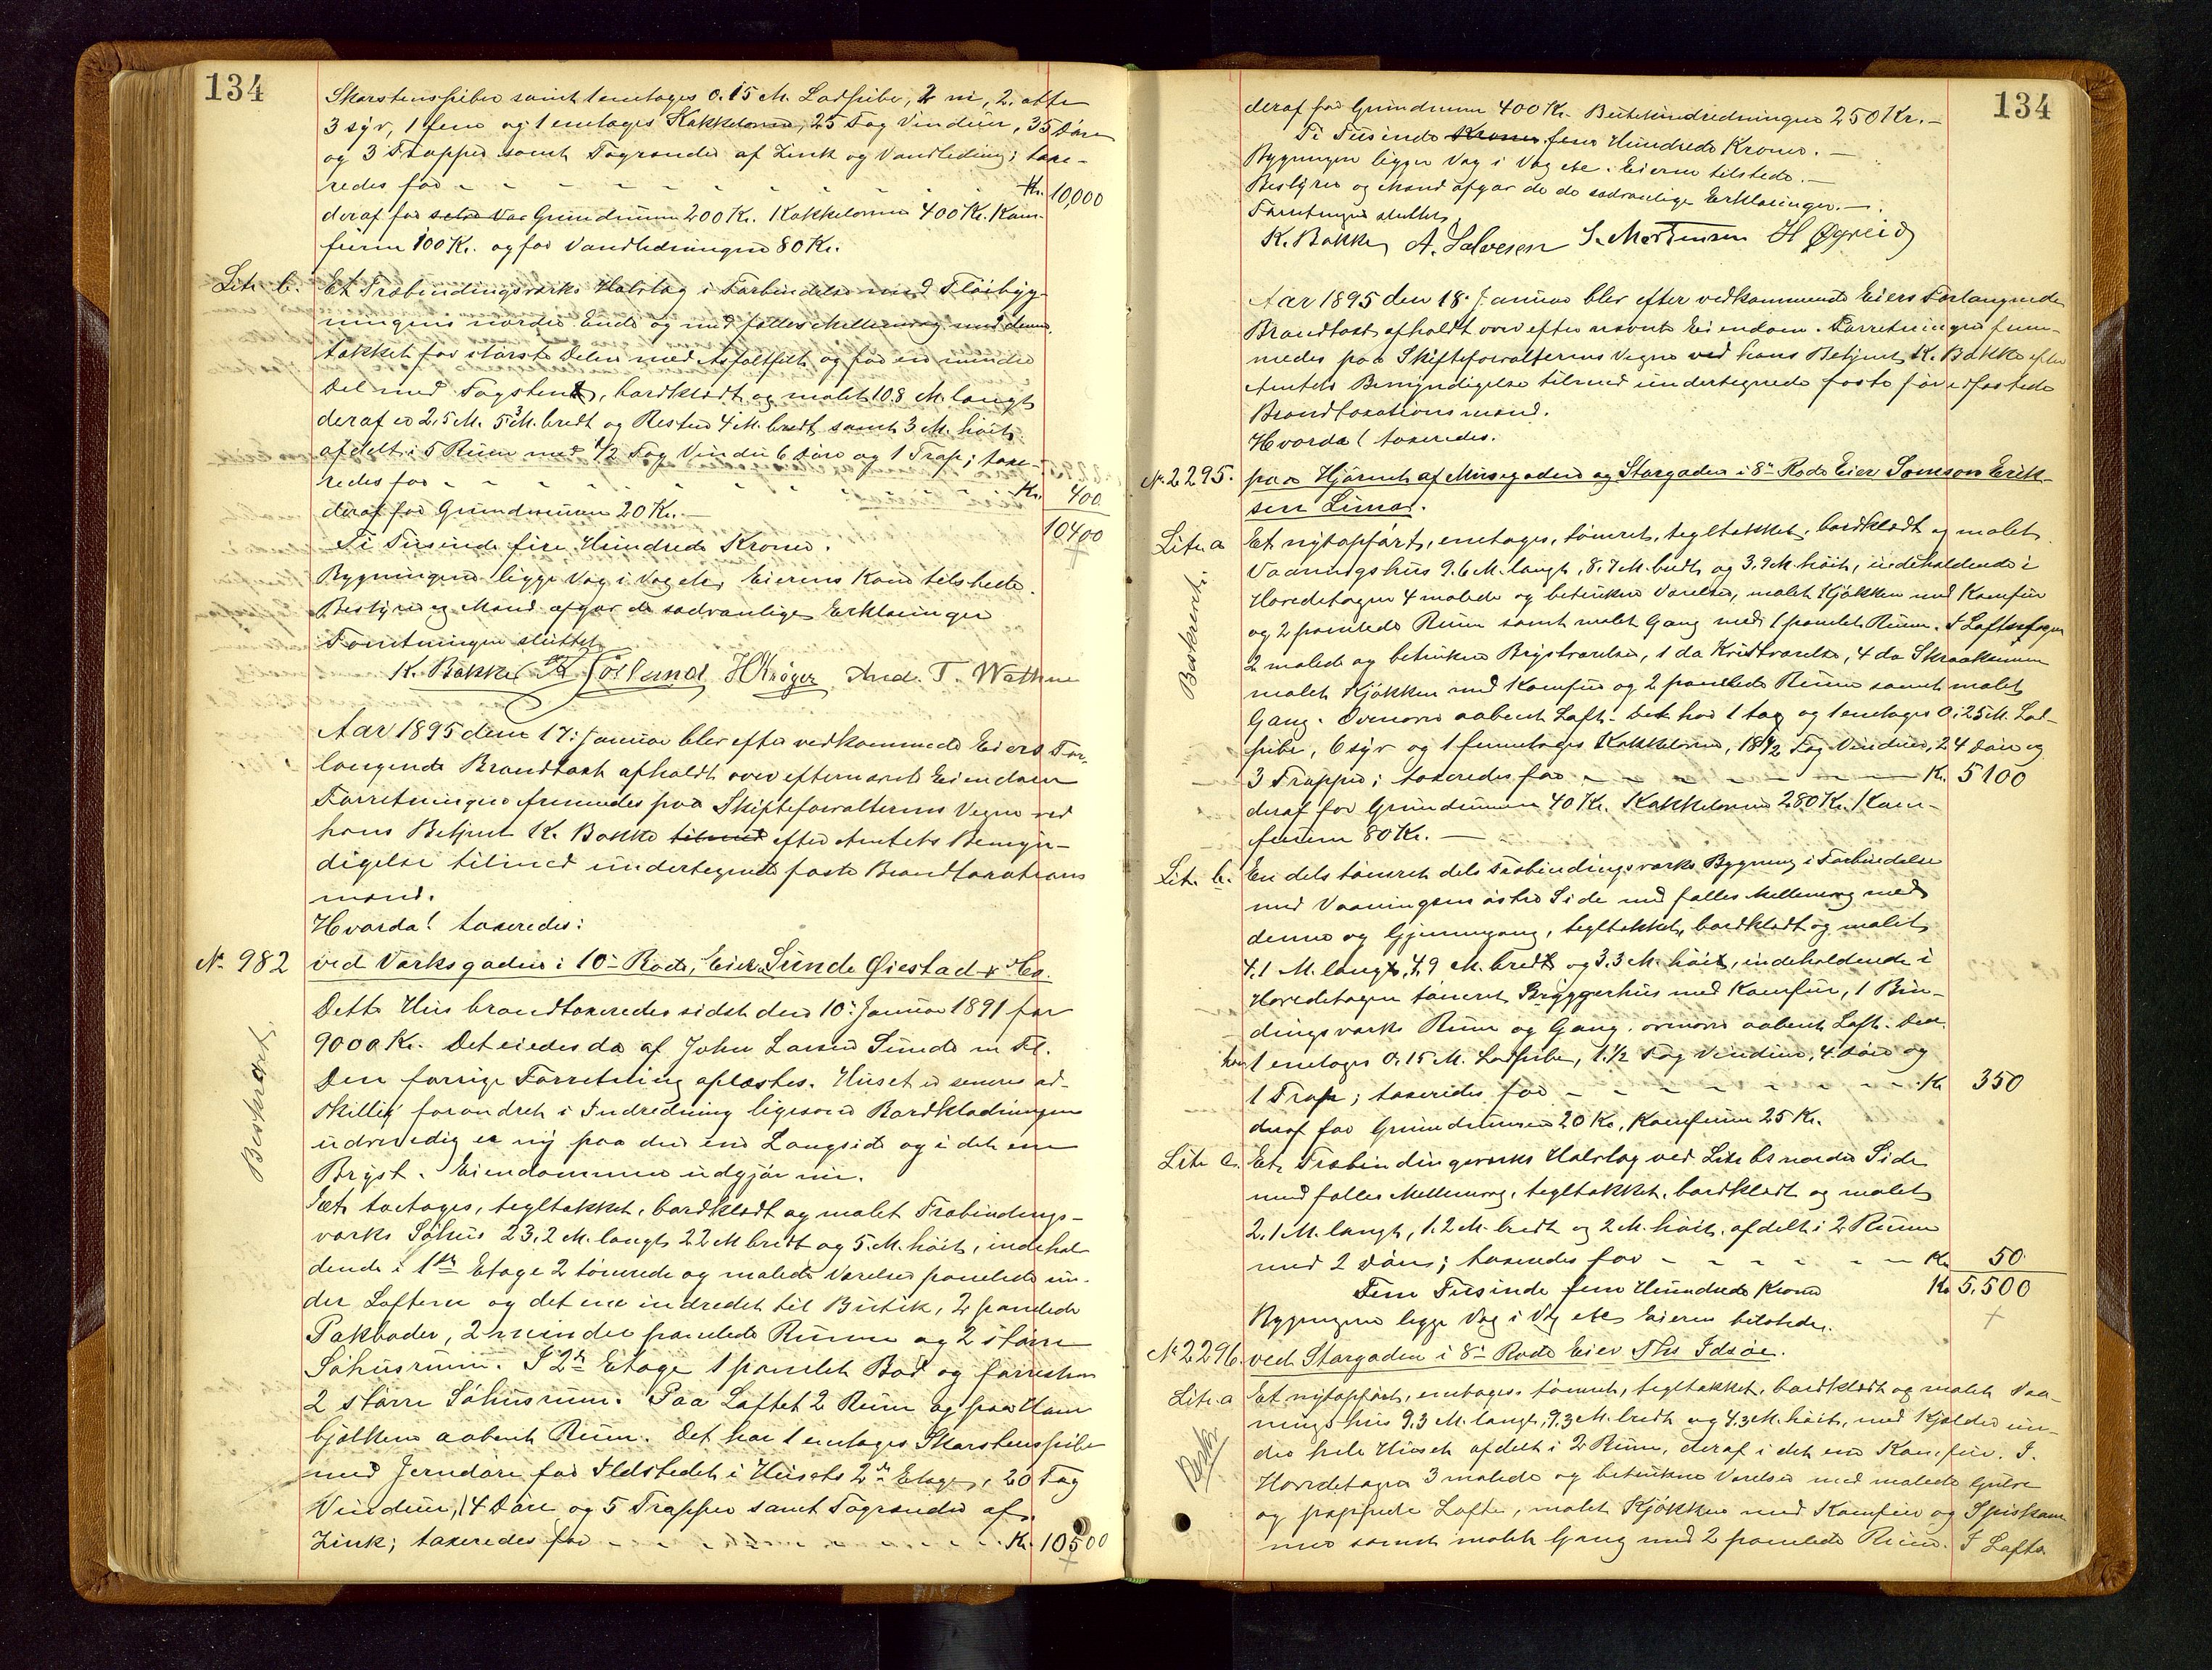 134
Skorstenspiber samt 1 enetages 0.15 M. Ladpibe, 2 ni, 2 otte
3 syv, 1 fem og 1 enetages Kakkelovne, 25 Fag Vinduer, 35 Døre
og 3 Trapper samt Tagrender af Zink og Vandledning; taxe-
redes for - - - Kr. 10,000
deraf for Grundmuren 200 Kr. Kakkelovne 400 Kr. Kom-
furene 100 Kr. og for Vandledningen 80 Kr.
Litr. b. Et Træbindingsværks Halvtag i Forbindelse med Fløibyg-
ningens nordre Ende og med fælles Mellemvæg med denne,
tækket for største Delen med Asfaltfilt og for en mindre
Del med Tagsten, bordklædt og malet 10.8 M. langt
deraf er 2.5 M. 5.3 M. bredt og Resten 4 M. bredt samt 3 M. høit
afdelt i 5 Rum med 1/2 Fag Vindu 6 Døre og 1 Trap; taxe-
redes for - - - Kr. 400
deraf for Grundmuren 20 Kr. -
10400
Ti Tusinde fire Hundrede Kroner.
Bygningerne ligge Væg i Væg etc. Eieren kom tilstede.
Bestyrer og Mænd afgav de sædvanlige Erklæringer
Forretningen sluttet
K. Bakke Sørland H Krøger And. T. Wathne
Aar 1895 den 17. Januar blev efter vedkommende Eiers For-
langende Brandtaxt afholdt over efternævnte Eiendom
Forretningen fremmedes paa Skifteforvalterens Vegne ved
hans Betjent K. Bakke tilmed efter Amtets Bemyn-
digelse tilmed undertegnede faste Brandtaxations
mænd.
Hvorda! taxeredes:
No 982 ved Værksgaden i 10de Rode, Eier Sunde Øiestad & Co.
Beskrevet.
Dette Hus brandtaxeredes sidst den 10. Januar 1891 for
9000 Kr. Det eiedes da af John Larsen Sunde m Fl.
Den forrige Forretning oplæstes. Huset er senere ad-
skillig forandret i Indredning ligesom Bordklædningen
udvendig er ny paa den ene Langside og i det ene
Bryst. Eiendommen udgjør nu.
Et toetages, tegltækket, bordklædt og malet Træbindings-
værks Søhus 23.2 M. langt 22 M bredt og 5. M. høit, indehol-
dende i 1ste Etage 2 tømrede og malede Værelser panelede un-
der Lofterne og det ene indredet til Butik, 2 panelede
Pakboder, 2 mindre panelede Rumme og 2 større
Søhusrum. I 2den Etage 1 panelet Bod og forresten
2 større Søhusrum. Paa Loftet 2 Rum og paa Hane
bjælkene aabent Rum. Det har 1 enetages Skorstenspibe
med Jerndøre for Ildstedet i Husets 2den Etage, 20 Fag
Vinduer, 14 Døre og 5 Trapper samt Tagrender af
Zink; taxeredes for - - - Kr. 10500
134
deraf for Grundmuren 400 Kr. Butikindredningen 250 Kr. -
Ti Tusinde Kroner fem Hundrede Kroner. -
Bygningen ligger Væg i Væg etc. Eierne tilstede. -
Bestyrer og Mænd afgav de sædvanlige Erklæringer. -
Forretningen sluttet
K. Bakke A. Salvesen S. Mortensen H Øgreid
Aar 1895 den 18. Januar blev efter vedkommende Eiers Forlangende
Brandtaxt afholdt over efternævnte Eiendom. Forretningen frem-
medes paa Skifteforvalterens Vegne ved hans Betjent K. Bakke efter
Amtets Bemyndigelse tilmed undertegnede faste edfæstede
Brandtaxationsmænd.
Hvorda! taxeredes.
No 2295. paa Hjørnet af Musegaden og Storgaden i 8de Rode Eier Samson Erik-
sen Lima.
Litr. a Et nyopført, enetages, tømret, tegltækket, bordklædt og malet
Beskrevet.
Vaaningshus 9.6 M. langt, 8.7 M. bredt og 3.9 M. høit, indeholdende i
Hovedetagen 4 malede og betrukne Værelser, malet Kjøkken med Komfur
og 2 panelede Rum samt malet Gang med 1 panelet Rum. I Loftsetagen
2 malede og betrukne Brystværelser, 1 do Kvistværelse, 4 do Skraakamre
malet Kjøkken med Komfur og 2 panelede Rumme samt malet
Gang. Ovenover aabent Loft. Det har 1 to og 1 enetages 0.25 M. Lad-
pibe, 6 syv og 1 femetages Kakkelovne, 18 1/2 Fag Vinduer, 24 Døre og
3 Trapper; taxeredes for - - - Kr. 5100
deraf for Grundmuren 40 Kr. Kakkelovne 280 Kr. Kom-
furene 80 Kr. -
Litr. b. En dels tømret dels Træbindingsværks Bygning i Forbindelse
med Vaaningens østre Side med fælles Mellemvæg med
denne og Gjennemgang, tegltækket, bordklædt og malet
4.1 M. langt, 4.9 M. bredt og 3.3 M. høit, indeholdende i
Hovedetagen tømret Bryggerhus med Komfur, 1 Bin-
dingsværks Rum og Gang. ovenover aabent Loft. Den
har 1 enetages 0.15 M. Ladpibe, 1 1/2 Fag Vinduer, 4 Døre og
1 Trap; taxeredes for - - - Kr. 350
deraf for Grundmuren 20 Kr, Komfuren 25 Kr.
Litr. c. Et Træbindingsværks Halvtag ved Litr. b's nordre Side
med fælles Mellemvæg, tegltækket, bordklædt og malet
2.1 M. langt, 1.2 M. bredt og 2 M. høit, afdelt i 2 Rumme
med 2 Døre; taxeredes for - - - Kr. 50
Fem Tusinde fem Hundrede Kroner Kr 5.500
Bygningerne ligge Væg i Væg etc. Eieren tilstede.
No 2296. ved Storgaden i 8de Rode Eier Ths Idsøe.
Litr. a Et nyopført, enetages, tømret, tegltækket, bordklædt og malet Vaa-
ningshus 9.3 M. langt, 9.3 M. bredt og 4.3 M. høit, med Kjelder un-
der hele Huset afdelt i 2 Rum, deraf i det ene Komfur. I
Beskr.
Hovedetagen 3 malede og betrukne Værelser med malede Gulve
og pappede Lofte, malet Kjøkken med Komfur og Spiskam
mer samt malet Gang med 2 panelede Rum. I Lofts